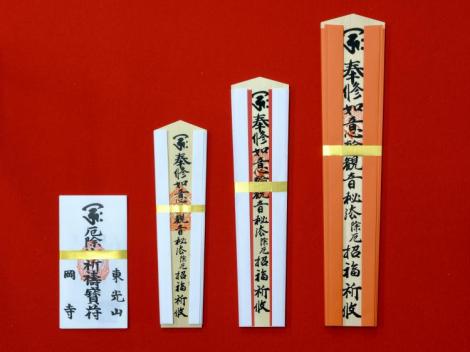 東光山
厄除祈禱寶符
岡寺
奉修如意輪觀音秘法除厄招福祈攸
奉修如意輪觀音秘法除厄招福祈攸
奉修如意輪觀音秘法除厄招福祈攸